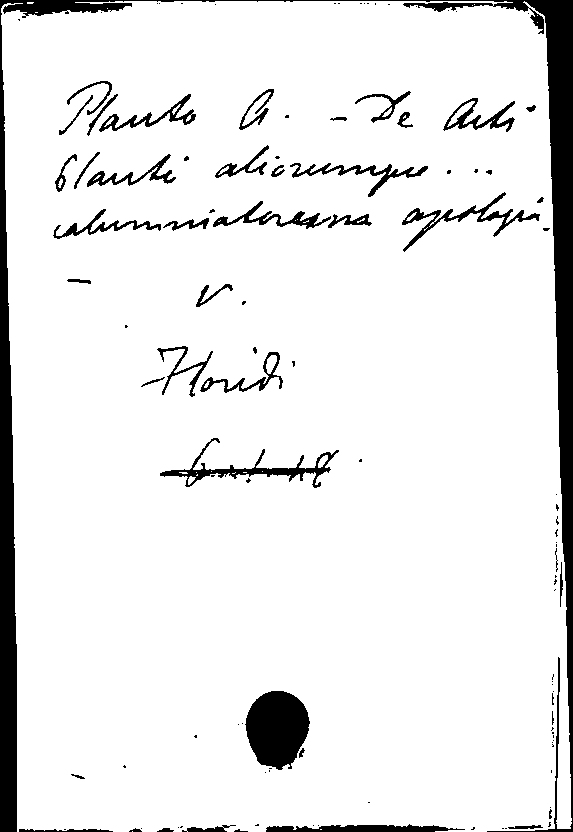 Plauto A. - De Acti
Plauti aliorumque ...
calumniatores apologia.
v.
Floridi